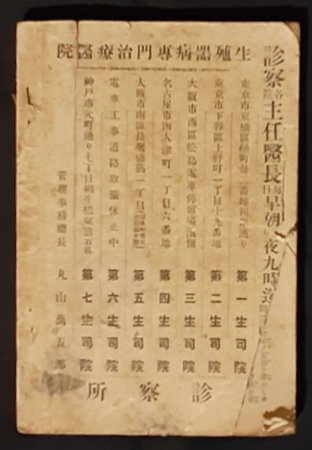 院醫療治門專病器殖生
診察各院主任醫長毎日早朝ヨリ夜九時迄
東京市京橋區 第一生司院
東京市下谷區上野町一丁目十九番地 第二生司院
大阪市西區松島電車停留場 第三生司院
名古屋市南大津町一丁目六番地 第四生司院
大阪市南區長堀橋筋一丁目 第五生司院
電車工事道路取擴休止中 第六生司院
神戸市元町通り七丁目 第七生司院
管理事務總長 丸山萬五郎
所察診